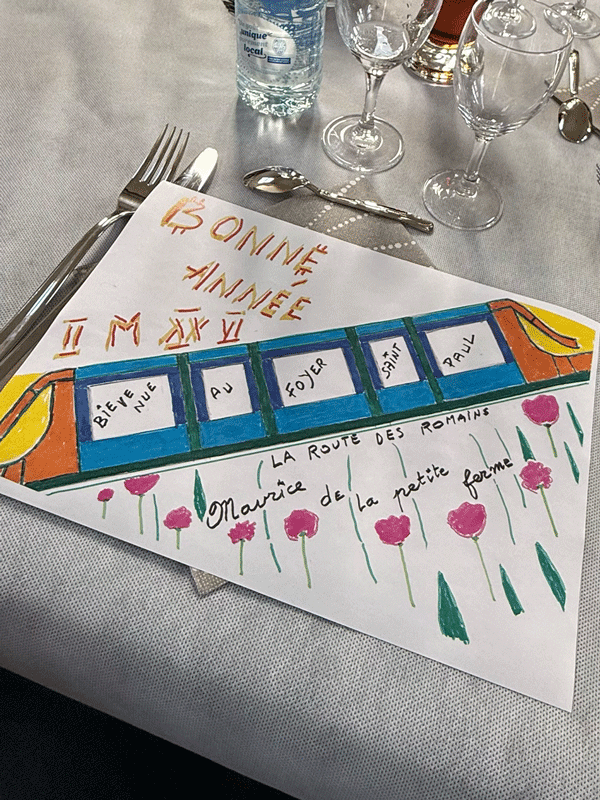 unique
local
BONNE
ANNÉE
II M XX VI
BIEVE NUE AU FOYER SAINT PAUL
LA ROUTE DES ROMAINS
Maurice de la petite ferme